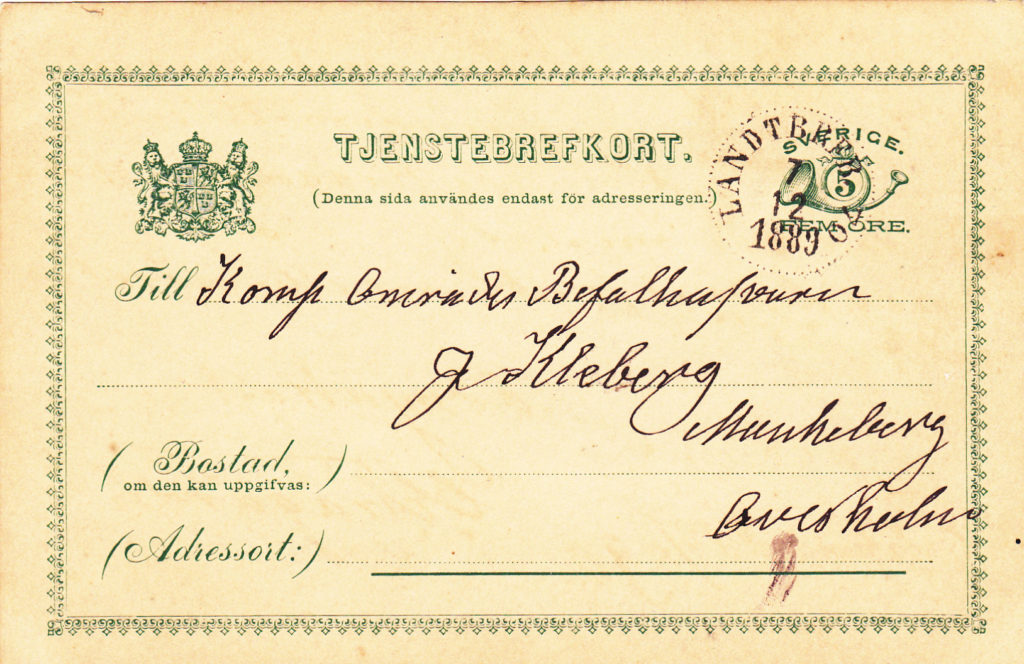 TJENSTEBREFKORT.
(Denna sida användes endast för adresseringen.)
SVERIGE.
5
FEM ÖRE.
LANDTBREF
7
12
1889
Till Komp Områdes Befälhafvaren
J Kleberg
Munkeberg
(Bostad,
om den kan uppgifvas:)
Ovesholm
(Adressort:)